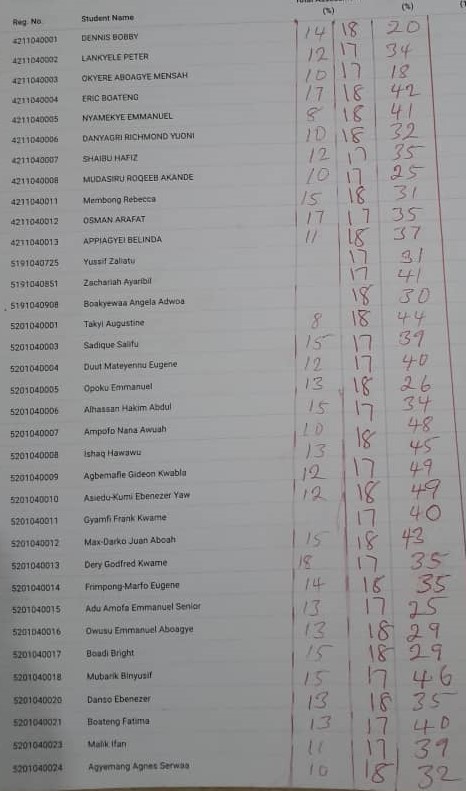 (%) (%)
Reg. No. Student Name
4211040001 DENNIS BOBBY 14 18 20
4211040002 LANKYELE PETER 12 17 34
4211040003 OKYERE ABOAGYE MENSAH 10 17 18
4211040004 ERIC BOATENG 17 18 42
4211040005 NYAMEKYE EMMANUEL 8 18 41
4211040006 DANYAGRI RICHMOND YUONI 10 18 32
4211040007 SHAIBU HAFIZ 12 17 35
4211040008 MUDASIRU ROQEEB AKANDE 10 17 25
4211040011 Membong Rebecca 15 18 31
4211040012 OSMAN ARAFAT 17 17 35
4211040013 APPIAGYEI BELINDA 11 18 37
5191040725 Yussif Zaliatu 17 31
5191040851 Zachariah Ayaribil 17 41
5191040908 Boakyewaa Angela Adwoa 18 30
5201040001 Takyi Augustine 8 18 44
5201040003 Sadique Salifu 15 17 39
5201040004 Duut Mateyennu Eugene 12 17 40
5201040005 Opoku Emmanuel 13 18 26
5201040006 Alhassan Hakim Abdul 15 17 34
5201040007 Ampofo Nana Awuah 10 18 48
5201040008 Ishaq Hawawu 13 45
5201040009 Agbemafle Gideon Kwabla 12 17 49
5201040010 Asiedu-Kumi Ebenezer Yaw 12 18 49
5201040011 Gyamfi Frank Kwame 17 40
5201040012 Max-Darko Juan Aboah 15 18 43
5201040013 Dery Godfred Kwame 18 17 35
5201040014 Frimpong-Marfo Eugene 14 18 35
5201040015 Adu Amofa Emmanuel Senior 13 17 25
5201040016 Owusu Emmanuel Aboagye 13 18 29
5201040017 Boadi Bright 15 18 29
5201040018 Mubarik Binyusif 15 17 46
5201040020 Danso Ebenezer 13 18 35
5201040021 Boateng Fatima 13 17 40
5201040023 Malik Ifan 11 17 39
5201040024 Agyemang Agnes Serwaa 10 18 32